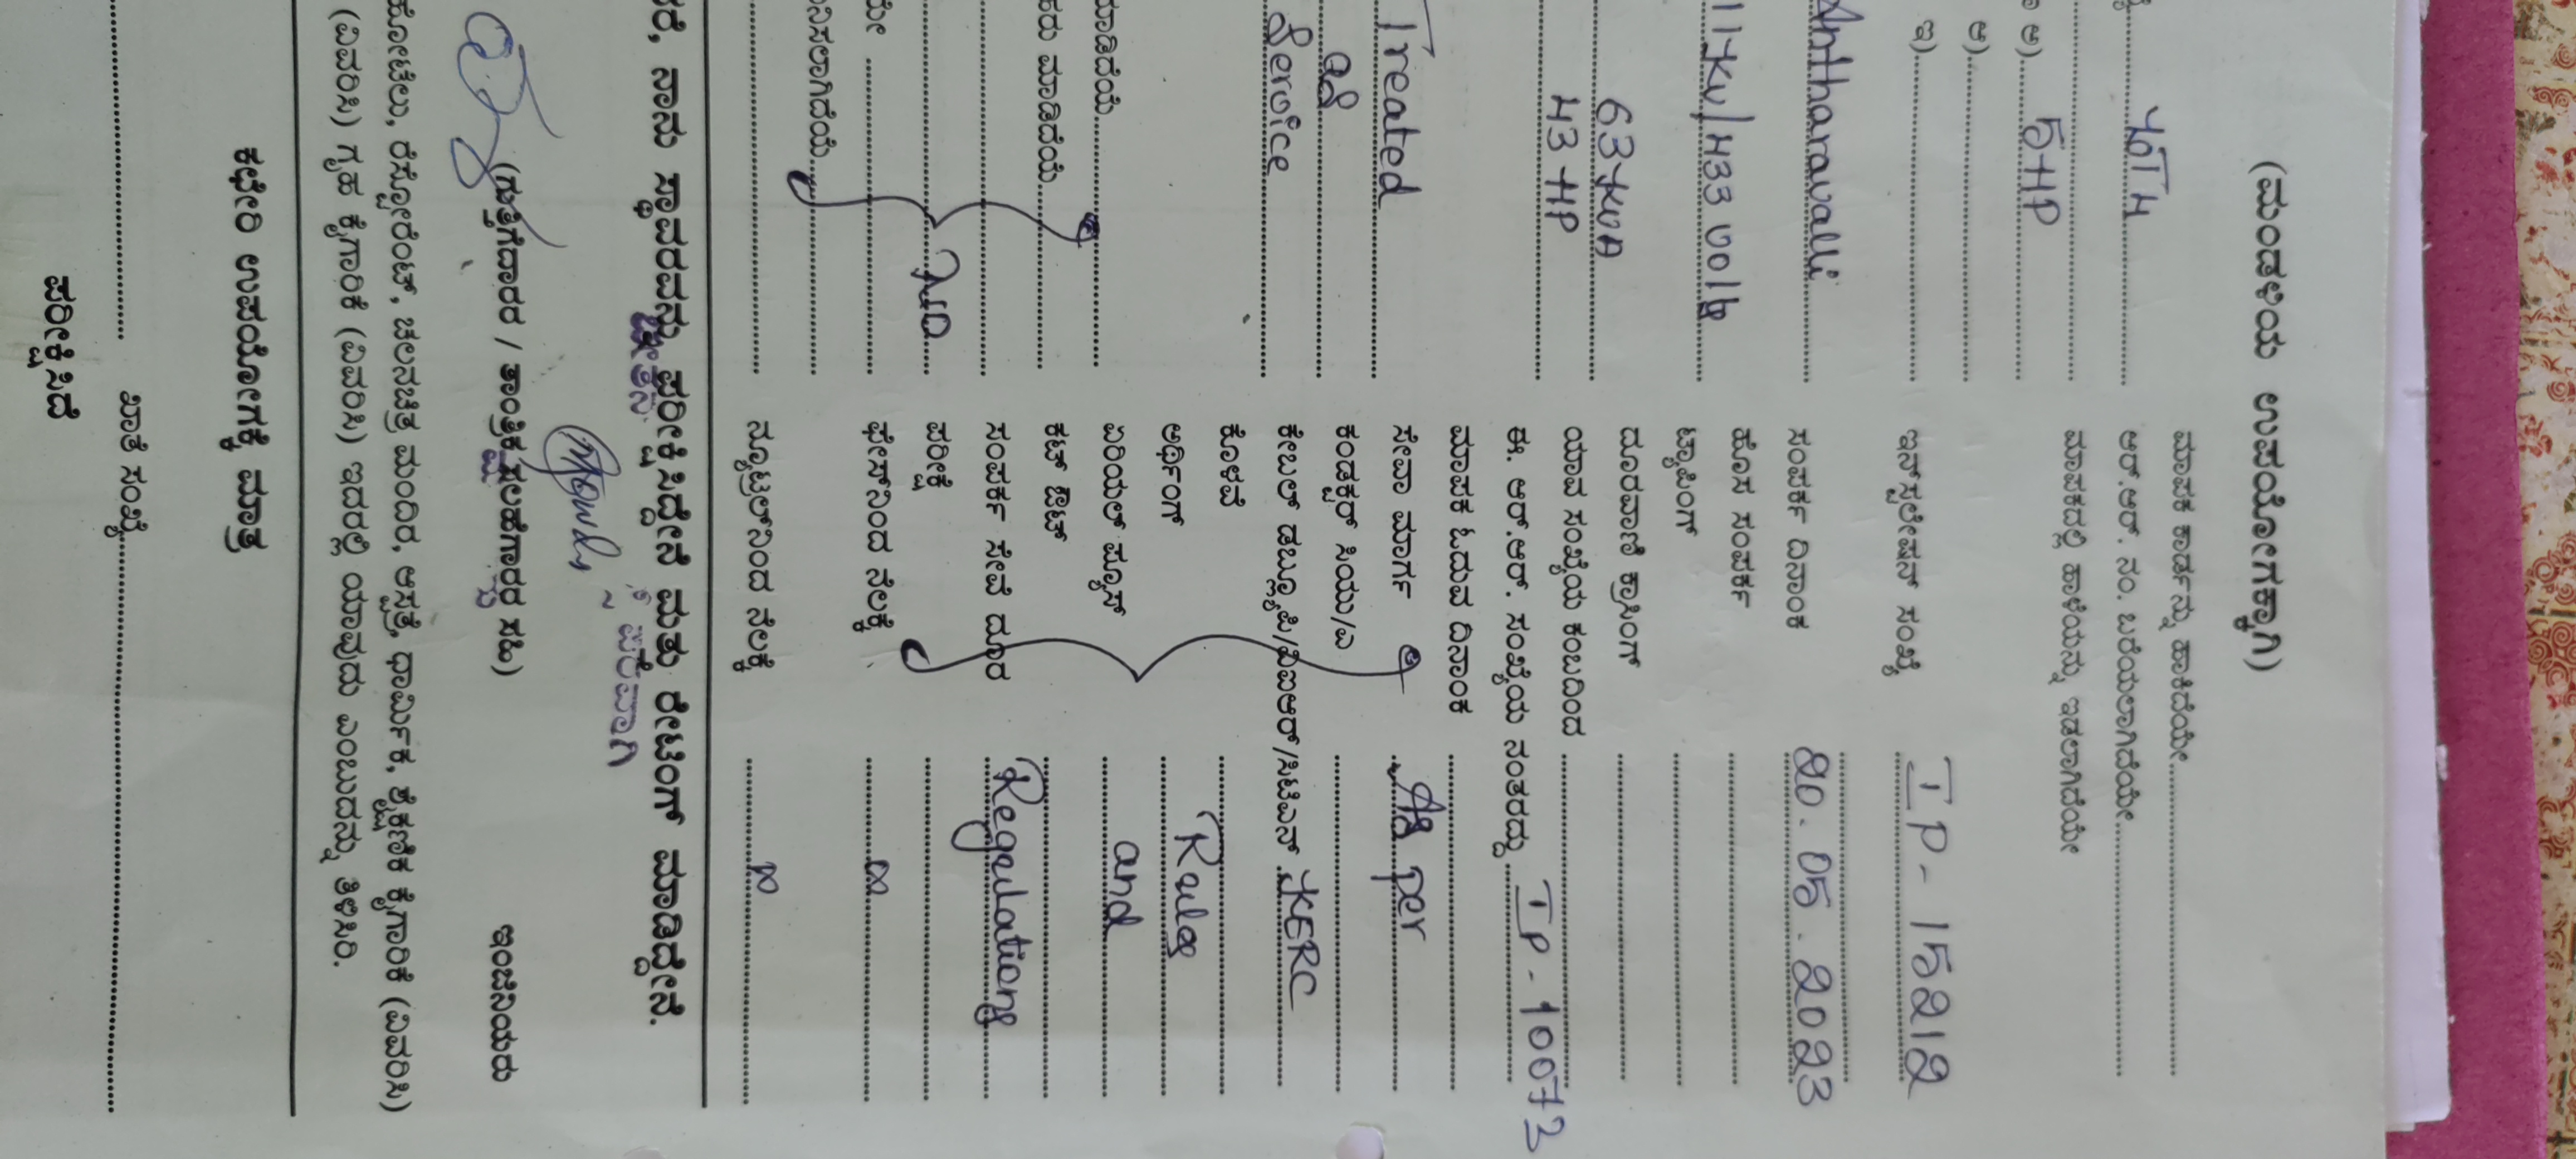 (ಮಂಡಳಿಯ ಉಪಯೋಗಕ್ಕಾಗಿ)
ಮಾಪಕ ಕಾರ್ಡನ್ನು ಹಾಕಿದೆಯೇ
ಆರ್.ಆರ್. ನಂ. ಬರೆಯಲಾಗಿದೆಯೇ
ಮಾಪಕದಲ್ಲಿ ಹಾಳೆಯನ್ನು ಇಡಲಾಗಿದೆಯೇ
ಅ) 5HP
ಆ)
ಇ) ಇನ್‌ಸ್ಟಲೇಷನ್ ಸಂಖ್ಯೆ IP-15212
Antharavalli ಸಂಪರ್ಕ ದಿನಾಂಕ 20.05.2023
ಹೊಸ ಸಂಪರ್ಕ
11KV/433 Volts ಟ್ಯಾಪಿಂಗ್
ದೂರವಾಣಿ ಕ್ರಾಸಿಂಗ್
63KVA ಯಾವ ಸಂಖ್ಯೆಯ ಕಂಬದಿಂದ
43 HP ಈ. ಆರ್.ಆರ್. ಸಂಖ್ಯೆಯ ನಂತರದ್ದು IP-10073
ಮಾಪಕ ಓದುವ ದಿನಾಂಕ
Treated ಸೇವಾ ಮಾರ್ಗ As per
as ಕಂಡಕ್ಟರ್ ಸಿಯು/ಎ
Service ಕೇಬಲ್ ಡಬ್ಲ್ಯೂಪಿ/ವಿಐಆರ್/ಸಿಟಿಎಸ್ KERC
ಕೊಳವೆ
ಅರ್ಥಿಂಗ್ Rules
ಮಾಡಿದೆಯೆ ಏರಿಯಲ್ ಫ್ಯೂಸ್ and
ಮಾಡಿದೆಯೆ ಕಟ್ ಔಟ್
ಸಂಪರ್ಕ ಸೇವೆ ದೂರ Regulations
ಪರೀಕ್ಷೆ
ಫೇಸ್‌ನಿಂದ ನೆಲಕ್ಕೆ ∞
ನ್ಯೂಟ್ರಲ್‌ನಿಂದ ನೆಲಕ್ಕೆ
ನಾನು ಸ್ಥಾವರವನ್ನು ಪರೀಕ್ಷಿಸಿದ್ದೇನೆ ಮತ್ತು ರೇಟಿಂಗ್ ಮಾಡಿದ್ದೇನೆ.
(ಗುತ್ತಿಗೆದಾರರ / ತಾಂತ್ರಿಕ ಸಲಹೆಗಾರರ ಸಹಿ) ಇಂಜಿನಿಯರು
ಹೋಟೆಲು, ರೆಸ್ಟೋರೆಂಟ್, ಚಲನಚಿತ್ರ ಮಂದಿರ, ಆಸ್ಪತ್ರೆ, ಧಾರ್ಮಿಕ, ಶೈಕ್ಷಣಿಕ ಕೈಗಾರಿಕೆ (ವಿವರಿಸಿ)
(ವಿವರಿಸಿ) ಗೃಹ ಕೈಗಾರಿಕೆ (ವಿವರಿಸಿ) ಇದರಲ್ಲಿ ಯಾವುದು ಎಂಬುದನ್ನು ತಿಳಿಸಿರಿ.
ಕಛೇರಿ ಉಪಯೋಗಕ್ಕೆ ಮಾತ್ರ
ಖಾತೆ ಸಂಖ್ಯೆ
ಪರೀಕ್ಷಿಸಿದೆ